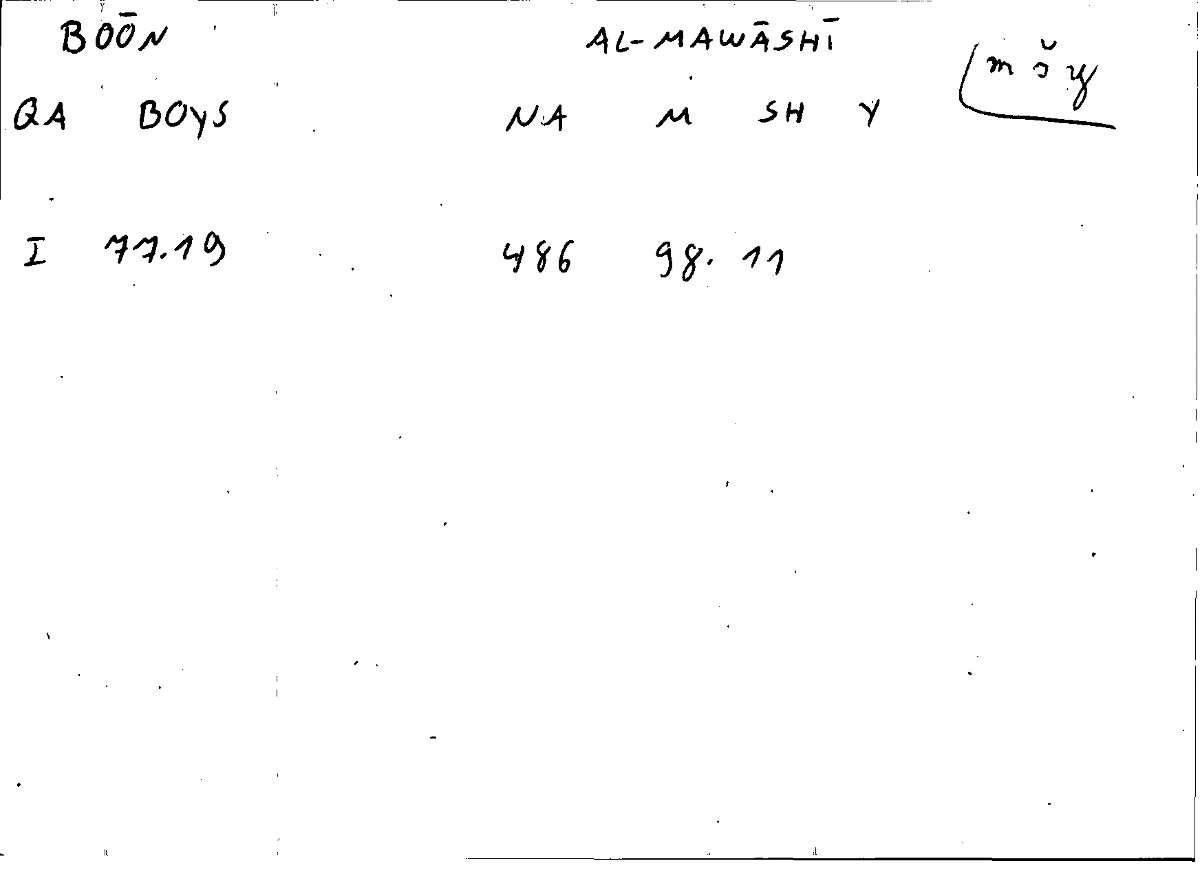 BOŌN AL-MAWĀSHĪ
QA BOYS NA M SH Y mšy
I 77.19 486 98.11